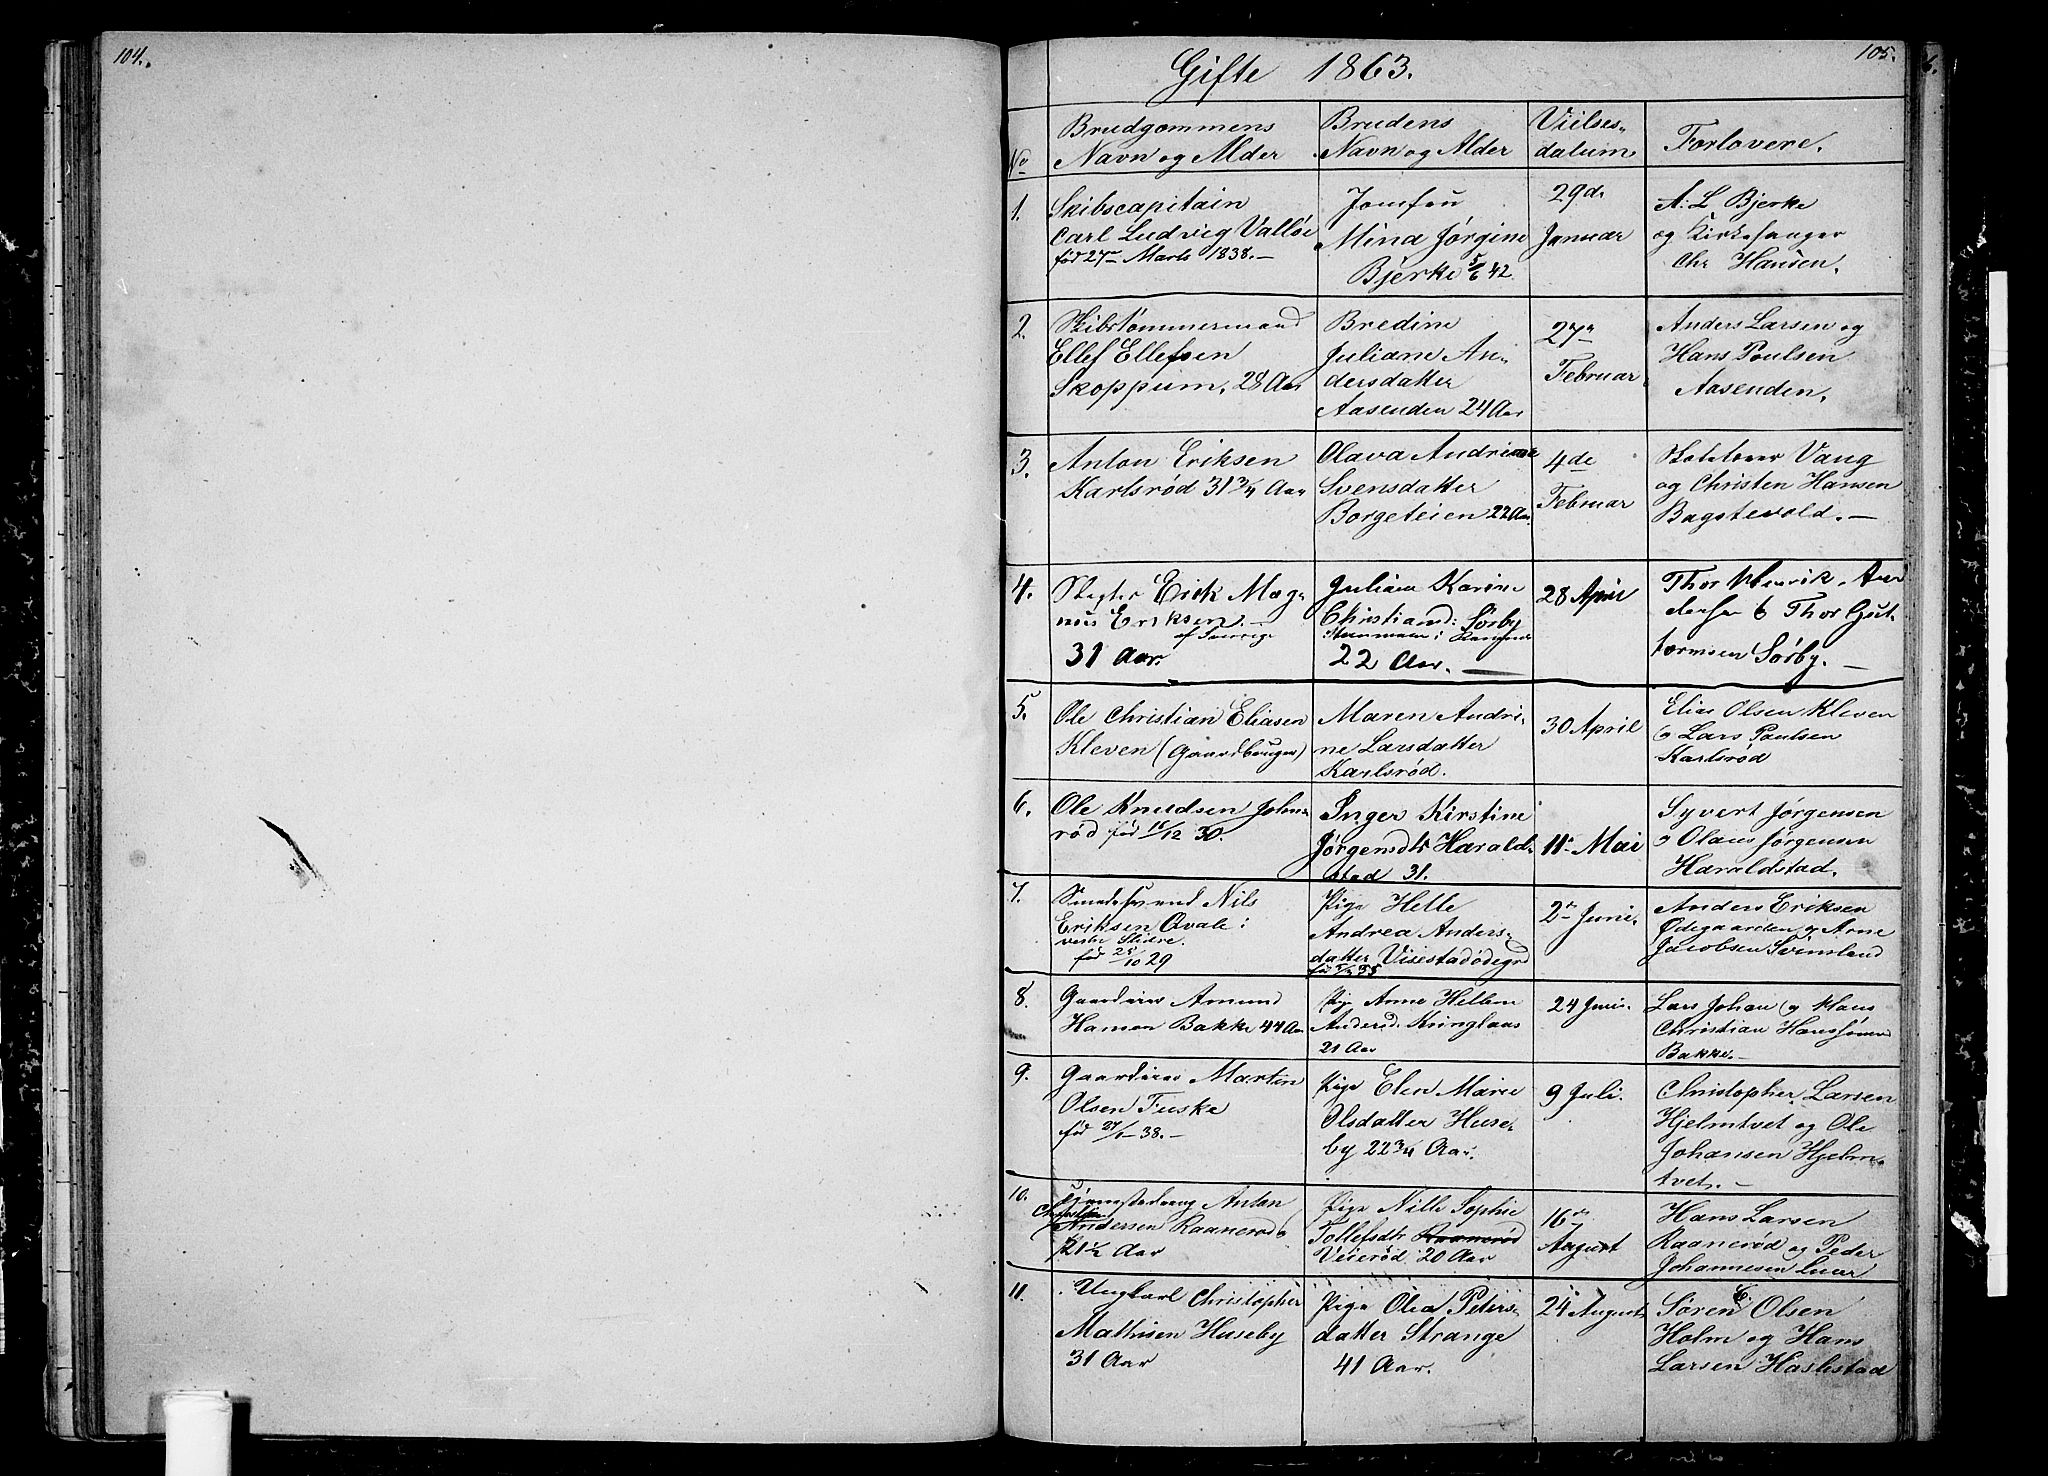 104.
105.
Gifte 1863.
No
Brudgommens
Navn og Alder
Brudens
Navn og Alder
Vielses-
datum
Forlovere.
1.
Skibscapitain
Carl Ludvig Valløe
født 27de Marts 1838.—
Jomfru
Mina Jørgine
Bjerke 5/6 42.
29de
Januar
A. L Bjerke
og Kirkesanger
Chr Hansen.
2.
Skibstømmermand
Ellef Ellefsen
Skoppum, 28 Aar
Bredine
Juliane An-
dersdatter
Aasenden 24 Aar
27de
Februar
Anders Larsen og
Hans Poulsen
Aasenden.
3.
Anton Eriksen
Karlsrød 31 3/4 Aar
Olava Andrine
Svensdatter
Borgeteien 22 Aar
4de
Februar
Vang
og Christen Hansen
Bagstevold.—
4.
Slagter Erick Mag-
nus Eriksen.—
af Sverrige
31 Aar.
Juliane Karine
Christiansd: Sørby
22 Aar.—
28 April
Thor Henrik An-
dersen & Thor Gut-
tormsen Sørby.—
5.
Ole Christian Eliasen
Kleven (Gaardbruger)
Maren Andri-
ne Larsdatter
Karlsrød.
30 April
Elias Olsen Kleven
o Lars Paulsen
Karlsrød
6.
Ole Knudsen John-
rød født 16/12 30.
Inger Kirstine
Jørgensdtr Harald-
stad 31.
11te Mai
Syvert Jørgensen
o Olaus Jørgensen
Haraldstad.
7.
Smedesvend Nils
Eriksen Qvale i
vestre Slidre.
født 25/10 29
Pige Helle
Andrea Anders-
datter Visestadødegrd
2den Juni.
Anders Eriksen
Ødegaarden og Arne
Jacobsen Svinsland
8.
Gaardeier Amund
Hansen Bakke 44 Aar
Pige Anne Hellene
Andersd: Kringlaas
21 Aar
24 Juni.
Lars Johan og Klaus
Christian Hanssønner
Bakke.—
9.
Gaardeier Martin
Olsen Fuske
født 27/1 38.—
Pige Elen Marie
Olsdatter Huse-
by 22 3/4 Aar.
9 Juli.
Christopher Larsen
Hjelmtvet og Ole
Johansen Hjelm-
tvet.—
10.
Anton
Christian
Andersen Raanerød
21 1/2 Aar
Pige Nille Sophie
Tollefsdtr Raanerød
Veierød 20 Aar
16de
August
Hans Larsen
Raanerød og Peder
Johannesen Lueer
11.
Ungkarl Christopher
Mathisen Huseby
31 Aar
Pige Olea Peters-
datter Strange
41 Aar.
24 August
Søren C. Olsen
Holm og Hans
Larsen Haslestad